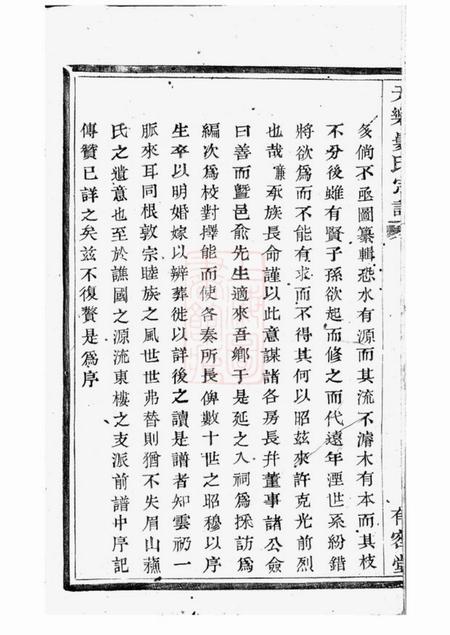 天樂夏氏宗譜
有容堂
多倘不亟圖纂輯恐水有源而其流不濬木有本而其枝
不分後雖有賢子孫欲起而修之而代遠年湮世系紛錯
將欲為而不能有求而不得其何以昭茲來許克光前烈
也哉謙承族長命謹以此意謀諸各房長幷董事諸公僉
曰善而暨邑俞先生適來吾鄉于是延之入祠為採訪為
編次為校對擇能而使各奏所長俾數十世之昭穆以序
生卒以明婚嫁以辨葬徙以詳後之讀是譜者知雲礽一
脈來耳同根敦宗睦族之風世世弗替則猶不失眉山蘓
氏之遺意也至於譙國之源流東樓之支派前譜中序記
傳贊已詳之矣茲不復贅是為序